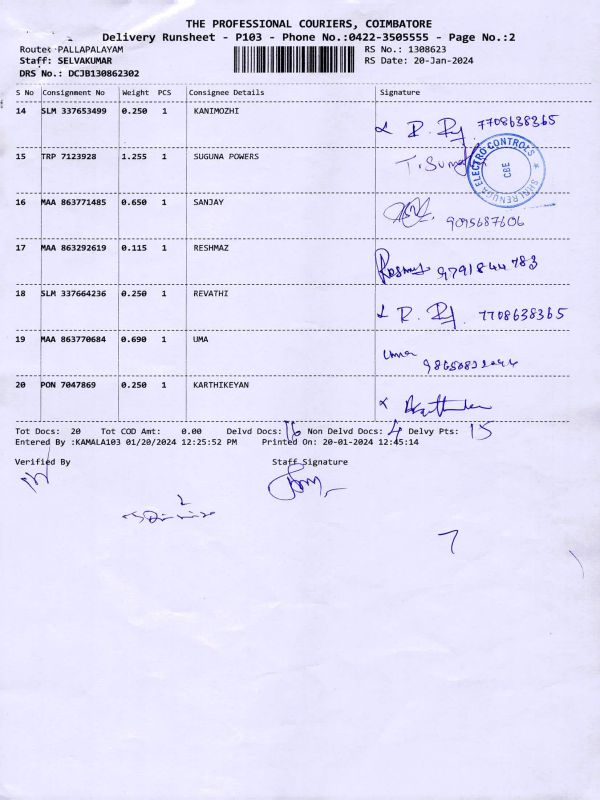 THE PROFESSIONAL COURIERS, COIMBATORE
Delivery Runsheet - P103 - Phone No.:0422-3505555 - Page No.:2
Route: PALLAPALAYAM RS No.: 1308623
Staff: SELVAKUMAR RS Date: 20-Jan-2024
DRS No.: DCJB130862302
S No Consignment No Weight PCS Consignee Details Signature
14 SLM 337653499 0.250 1 KANIMOZHI
7708638365
15 TRP 7123928 1.255 1 SUGUNA POWERS
SHRI RENUGA ELECTRO CONTROLS
CBE
16 MAA 863771485 0.650 1 SANJAY
9095687606
17 MAA 863292619 0.115 1 RESHMAZ
9791844783
18 SLM 337664236 0.250 1 REVATHI
7708638365
19 MAA 863770684 0.690 1 UMA
Uma
20 PON 7047869 0.250 1 KARTHIKEYAN
Tot Docs: 20 Tot COD Amt: 0.00 Delvd Docs: 16 Non Delvd Docs: 4 Delvy Pts: 15
Entered By :KAMALA103 01/20/2024 12:25:52 PM Printed On: 20-01-2024 12:45:14
Verified By Staff Signature
7